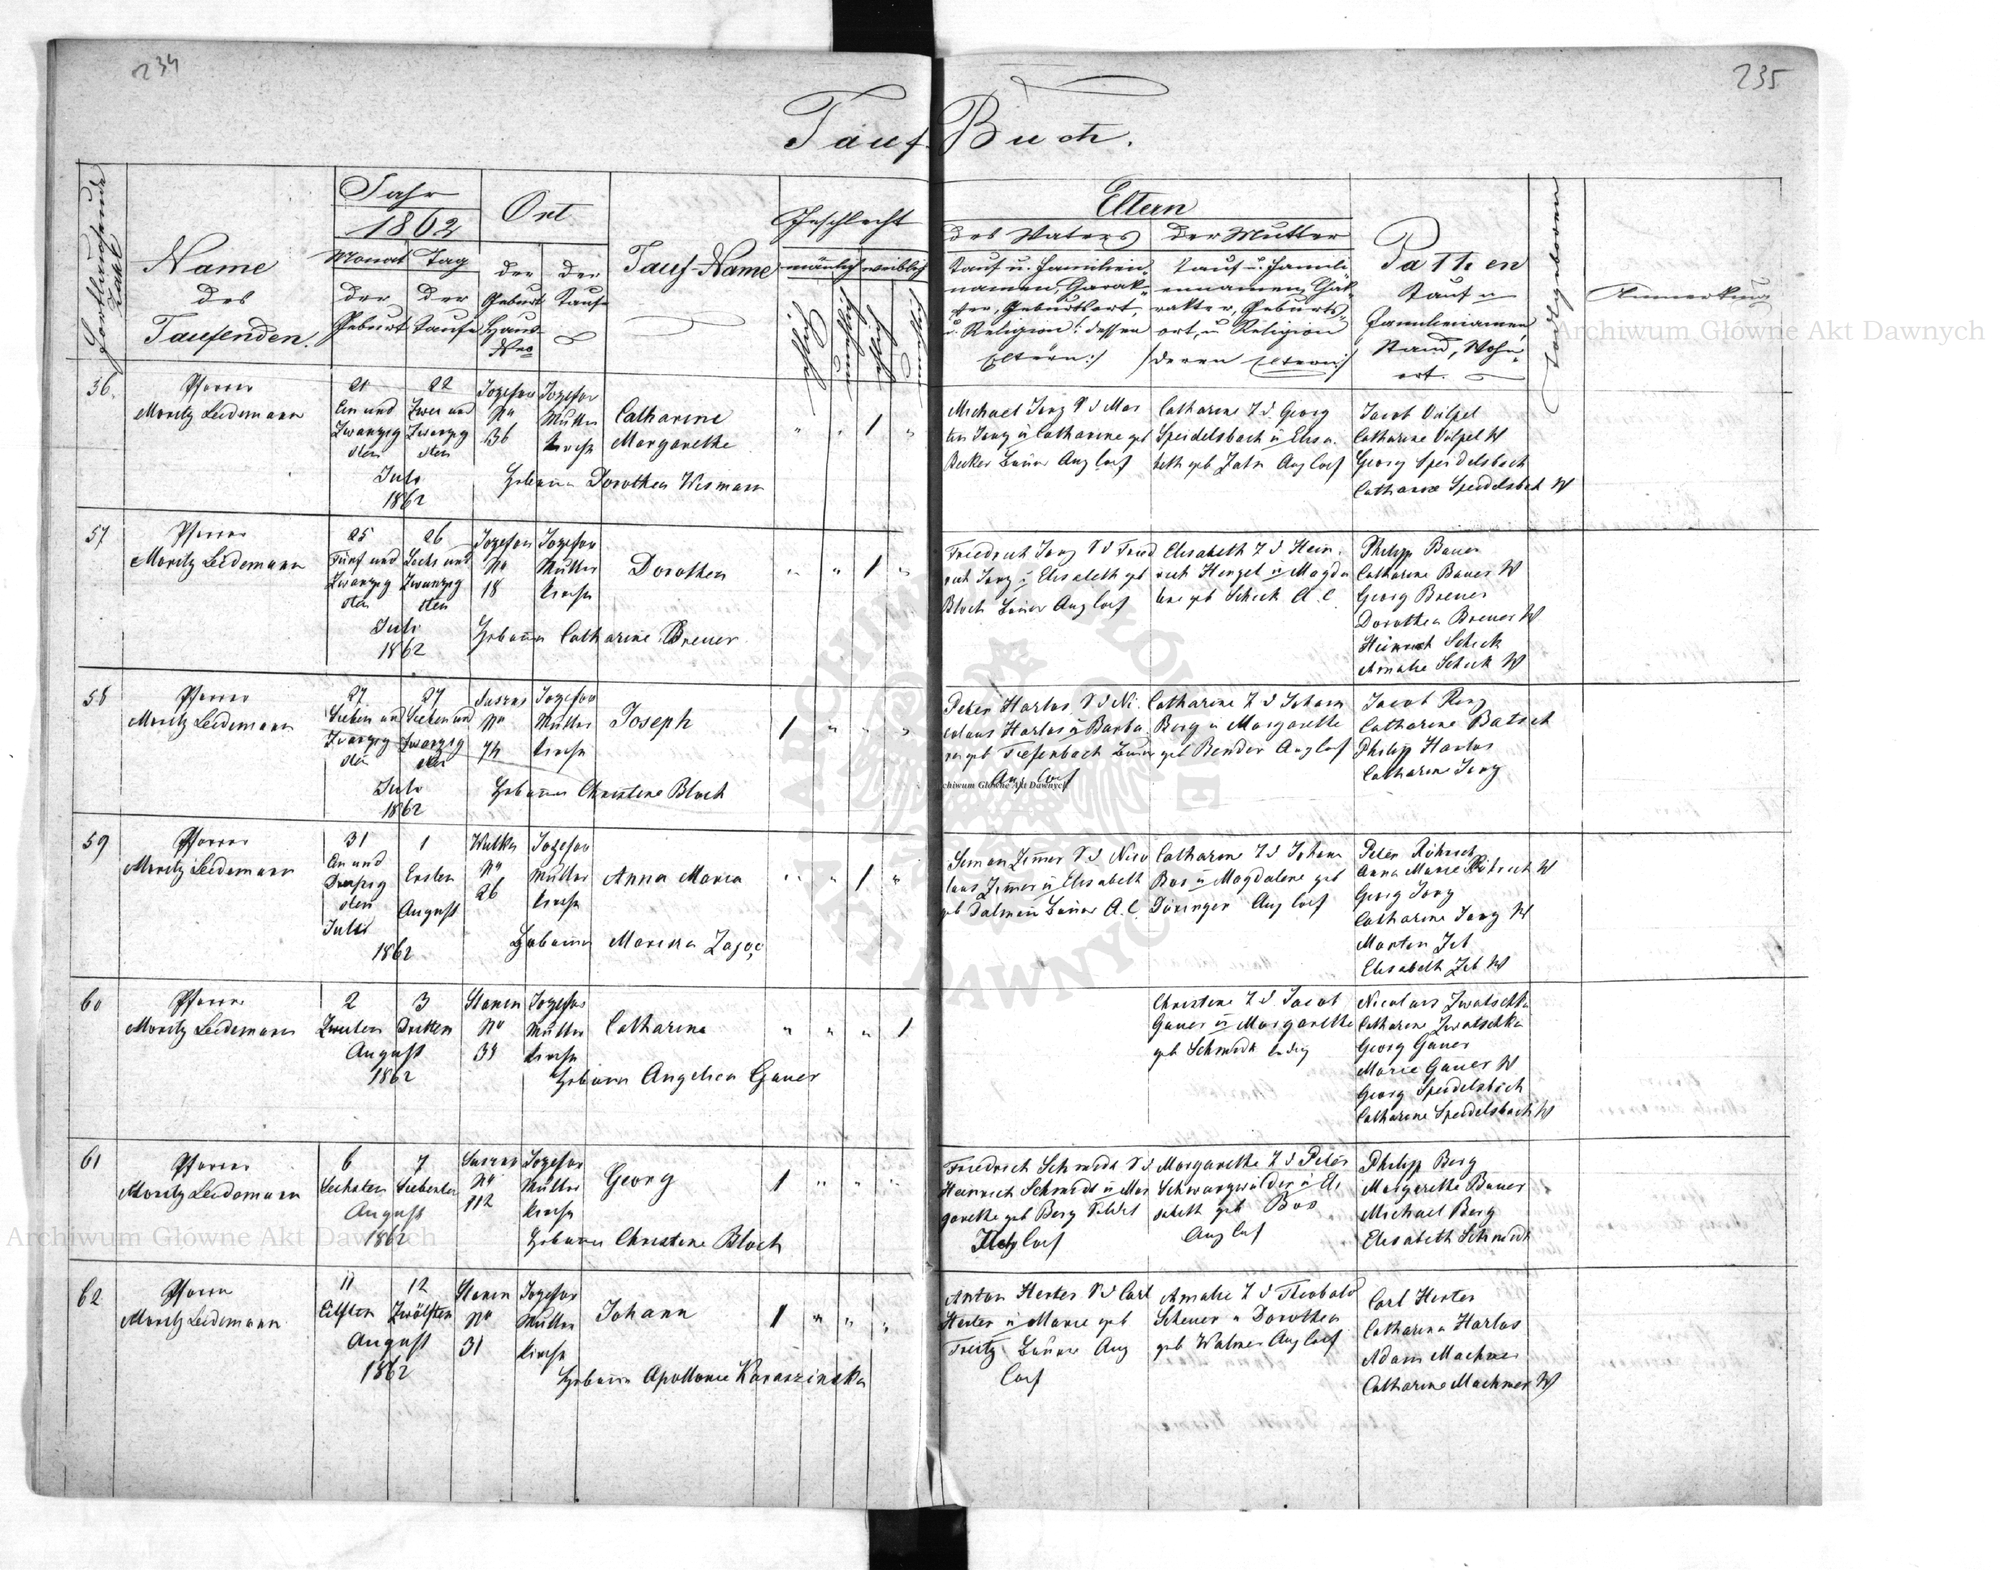 234
235
Tauf Buch.
Fortlaufende Zahl
Name
des
Taufenden.
Jahr
1862
Monat Tag
der der
Geburt Taufe
Ort
der der
Geburt Taufe
Haus
Nro
Tauf-Name
Geschlecht
männlich weiblich
ehelich
unehelich
ehelich
Eltern
des Vaters
Tauf u. Familien-
namen, Charak-
ter, Geburtsort,
u. Religion: dessen
Eltern:/
der Mutter
Tauf u. Famili-
ennamen, Cha-
rakter, Geburts-
ort, u. Religion
/deren Eltern:/
Pathen
Tauf u
Familienamen,
Stand, Wohn-
ort.
Todtgeboren
Anmerkung
56.
Pfarrer
Moritz Leidemann
21 22
Ein und Zwei und
Zwanzig Zwanzig
sten sten
Juli
1862
Jozefow
No
36
Jozefow
Mutter
Kirche
Catharine
Margarethe
" " 1 "
Hebamme Dorothea Wismann
Michael Jung S d Mar
tin Jung u Catharine geb
Becker Bauer Aug Conf
Catharine T d Georg
Speidelsbach u Elisa
beth geb Zahn Aug Conf
Jacob Völpel
Catharine Völpel W
Georg Speidelsbach
Catharine Speidelsbach W
57
Pfarrer
Moritz Leidemann
25 26
Fünf und Sechs und
Zwanzig Zwanzig
sten sten
Juli
1862
Jozefow
No
18
Jozefow
Mutter
Kirche
Dorothea
" " 1 "
Hebamme Catharine Breuer
Friedrich Jung S d Fried
rich Jung u Elisabeth geb
Bloch Bauer Aug Conf
Elisabeth T d Hein
rich Hengel u Magda
lene geb Schick A. C.
Philipp Bauer
Catharine Bauer W
Georg Breuer
Dorothea Breuer W
Heinrich Schick
Amalie Schick W
58
Pfarrer
Moritz Leidemann
27 27
Sieben und Sieben und
Zwanzig Zwanzig
sten sten
Juli
1862
No
74
Jozefow
Mutter
Kirche
Joseph
1 " " "
Hebamme Christine Bloch
Peter Harlos S d Ni
colaus Harlos u Barba
ra geb Tiefenbach Bauer
Aug Conf
Catharine T d Johann
Berg u Margarethe
geb Bender Aug Conf
Catharine Batsch
Philipp Harlos
Catharine Jung
59
Pfarrer
Moritz Leidemann
31 1
Ein und Ersten
Dreisig
sten August
Juli
1862
No
26
Jozefow
Mutter
Kirche
Anna Maria
" " 1 "
Hebamme Marina Zając
Simon Zimmer S d Nico
laus Zimmer u Elisabeth
geb Dalmen Bauer A. C.
Catharine T d Johann
Bos u Magdalene geb
Düringer Aug Conf
Peter Röhrich
Anna Marie Röhrich W
Georg Jung
Catharine Jung W
Martin Zeb
Elisabeth Zeb W
60
Pfarrer
Moritz Leidemann
2 3
Zweiten Dritten
August
1862
Stanin
No
33
Jozefow
Mutter
Kirche
Catharina
" " " 1
Hebamme Angelica Gauer
Christine T d Jacob
Gauer u Margarethe
geb Schmidt ledig
Nicolaus Zwatschka
Catharine Zwatschka
Georg Gauer
Marie Gauer W
Georg Speidelsbach
Catharine Speidelsbach W
61
Pfarrer
Moritz Leidemann
6 7
Sechsten Siebenten
August
1862
No
112
Jozefow
Mutter
Kirche
Georg
1 " " "
Hebamme Christine Bloch
Friedrich Schmidt S d
Heinrich Schmidt u Mar
garethe geb Berg Soldat
Aug Conf
Margarethe T d Peter
Schwarzwälder u Eli
sabeth geb Bos
Aug Conf
Philipp Berg
Margarethe Bauer
Michael Berg
Elisabeth Schmidt
62
Pfarrer
Moritz Leidemann
11 12
Eilften Zwölften
August
1862
Stanin
No
31
Jozefow
Mutter
Kirche
Johann
1 " " "
Hebamme Apollonie Karaszinska
Anton Herter S d Carl
Herter u Marie geb
Treitz Bauer Aug
Conf
Amalie T d Theobald
Scheuer u Dorothea
geb Walmer Aug Conf
Carl Herter
Catharina Harlos
Adam Machmer
Catharine Machmer W
Archiwum Główne Akt Dawnych